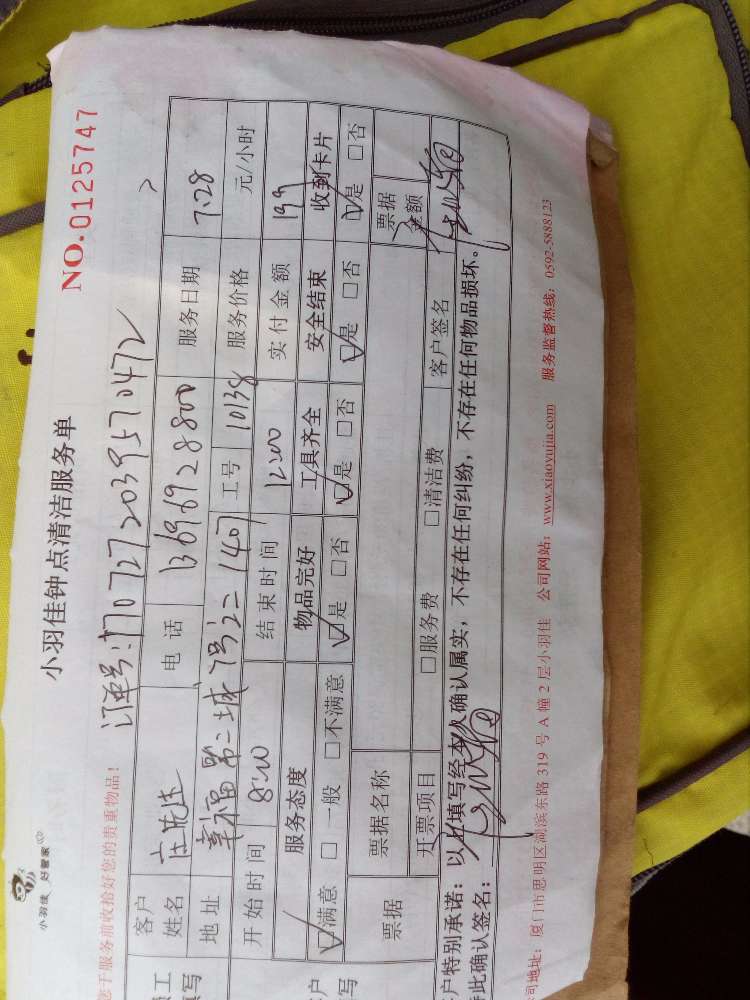 小羽佳 好管家
小羽佳钟点清洁服务单
NO.0125747
您于服务前收拾好您的贵重物品!
订单号:170727203957 0472
客户姓名 电话 13696928800 服务日期 7.28
地址 幸福第二城 7号之二 1407 工号 10138 服务价格 元/小时
开始时间 8:00 结束时间 12:00 实付金额 199
服务态度 物品完好 工具齐全 安全结束 收到卡片
☑满意 □一般 □不满意 ☑是 □否 ☑是 □否 ☑是 □否 ☑是 □否
票据 票据名称 票据金额
开票项目 □服务费 □清洁费 客户签名
户特别承诺:以上填写经本人确认属实,不存在任何纠纷,不存在任何物品损坏。
特此确认签名:
司地址:厦门市思明区湖滨东路 319 号 A 幢 2 层小羽佳 公司网站:www.xiaoyujia.com 服务监督热线:0592-5888123